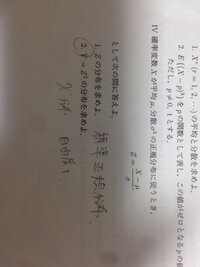 1. X^r (r = 1, 2, …) の平均と分散を求めよ。
2. E{(X − p)^3} を p の関数として表し、この値がゼロとなる p の値
ただし、p ≠ 0, 1 とする。
IV 確率変数 X が平均 μ、分散 σ² の正規分布に従うとき、
Z = (X − μ) / σ
として次の問に答えよ。
1. Z の分布を求めよ。
標準正規分布.
2. Y = Z² の分布を求めよ。
χ² 分布 自由度 1